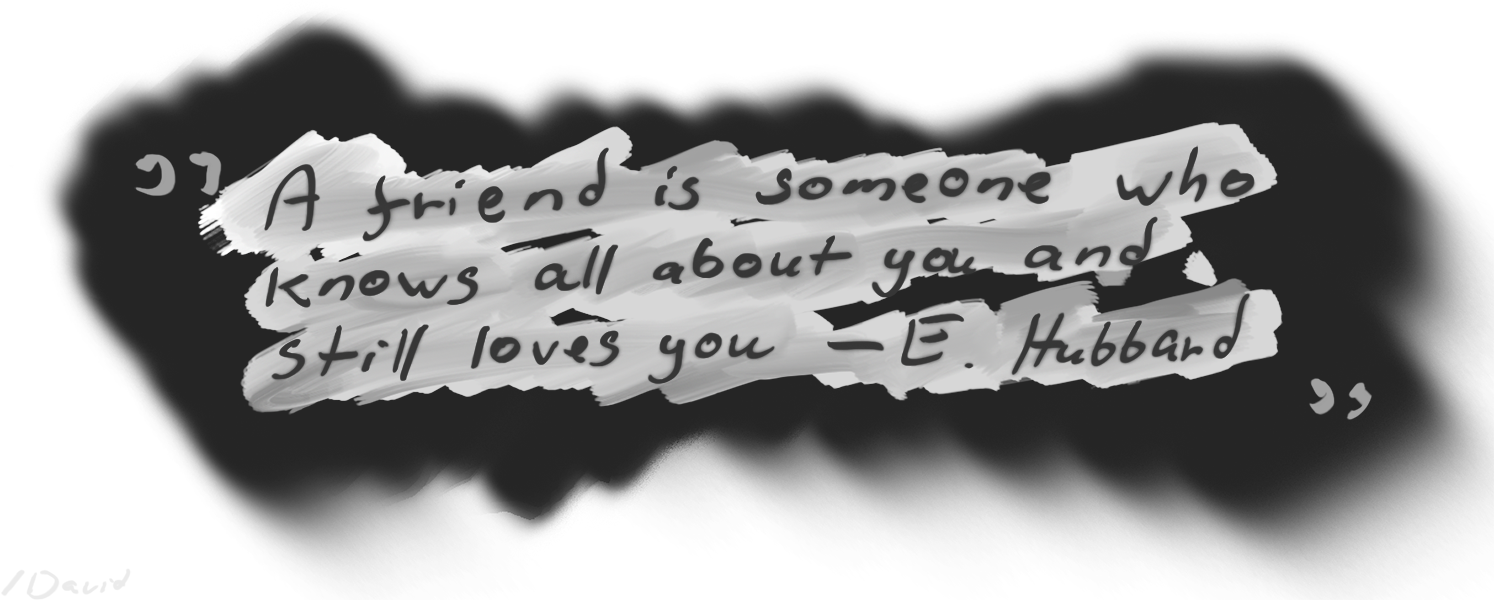 ”
A friend is someone who
knows all about you and
still loves you — E. Hubbard
”
/David